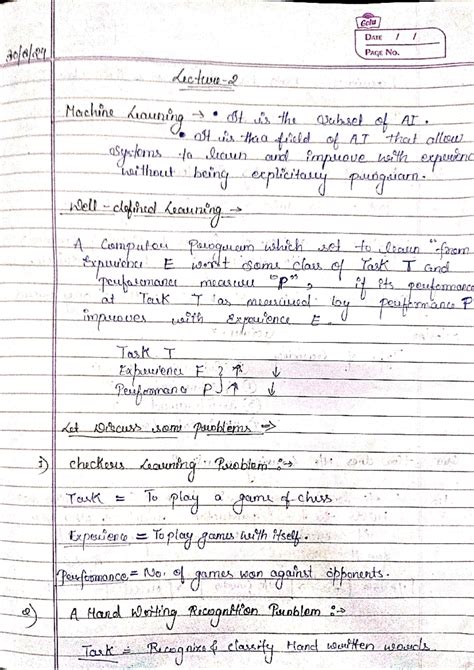 Celo
DATE / /
PAGE No.
Lecture-2
Machine Learning → • It is the subset of AI.
• It is the field of AI that allow
systems to learn and improve with experience
without being explicitary program.
Well-defined Learning →
A Computer Program which set to learn "from
Experience E wort some class of Task T and
performance measure "P", if its performance
at Task T as measured by performance P
improves with Experience E.
Task T
Experience E } ↑ ↓
Performance P } ↑ ↓
Let Discuss some problems :→
1) checkers Learning Problem :→
Task = To play a game of chess
Experience = To play games with itself.
Performance = No. of games won against opponents.
2) A Hand Writing Recognition Problem :→
Task = Recognize & classify Hand written words